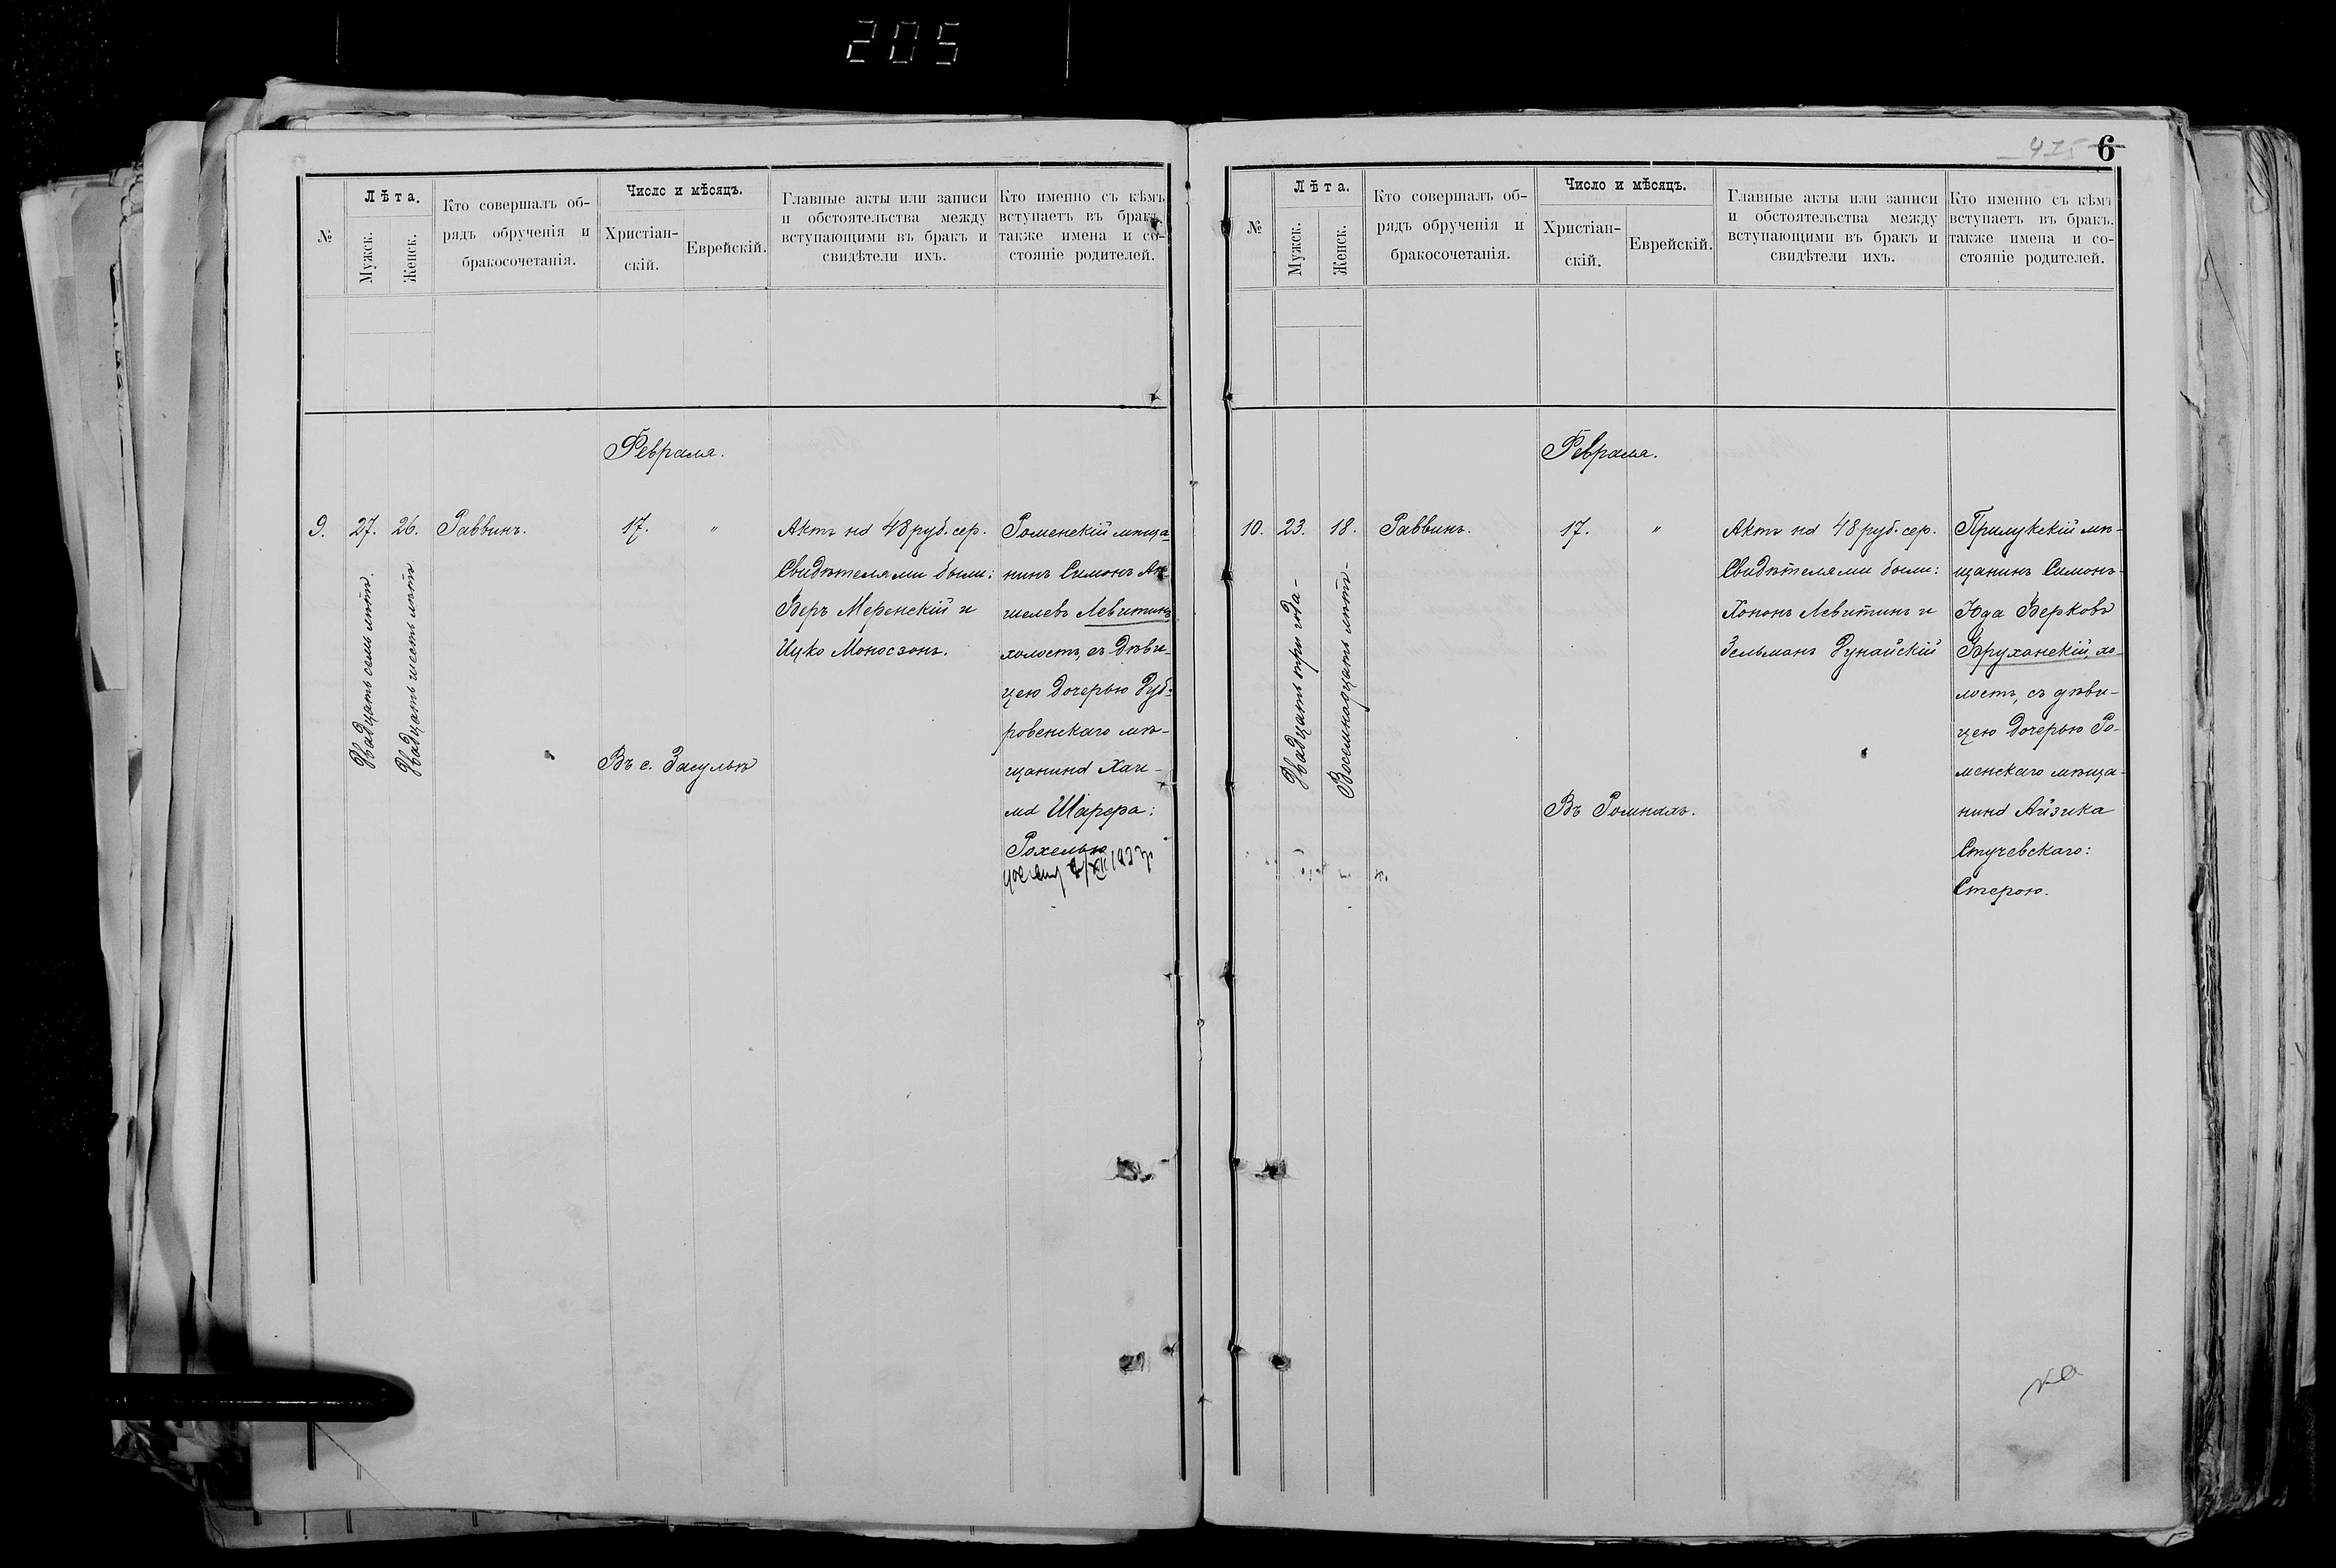 205
№
Лѣта.
Мужск.
Женск.
Кто совершалъ об-
рядъ обрученія и
бракосочетанія.
Число и мѣсяцъ.
Христіан-
скій.
Еврейскій.
Главные акты или записи
и обстоятельства между
вступающими въ бракъ и
свидѣтели ихъ.
Кто именно съ кѣмъ
вступаетъ въ бракъ.
также имена и со-
стояніе родителей.
Февраля.
9.
27.
Двадцать семь лѣтъ.
26.
Двадцать шесть лѣтъ
Раввинъ.
17.
"
Въ с. Засульѣ
Актъ на 48 руб. сер.
Свидѣтелями были:
Беръ Меренскій и
Ицко Моносзонъ.
Роменскій мѣща-
нинъ Симонъ
шелевъ Левитинъ
холостъ, съ дѣви-
цею дочерью Дуб-
ровенскаго мѣ-
щанина Хаи-
ма Шарфа:
Рохелью
6
№
Лѣта.
Мужск.
Женск.
Кто совершалъ об-
рядъ обрученія и
бракосочетанія.
Число и мѣсяцъ.
Христіан-
скій.
Еврейскій.
Главные акты или записи
и обстоятельства между
вступающими въ бракъ и
свидѣтели ихъ.
Кто именно съ кѣмъ
вступаетъ въ бракъ.
также имена и со-
стояніе родителей.
Февраля.
10.
23.
Двадцать три года-
18.
Восемнадцать лѣтъ-
Раввинъ.
17.
"
Въ Ромнахъ.
Актъ на 48 руб. сер.
Свидѣтелями были:
Хононъ Левитинъ и
Зельманъ Дунайскій
Прилукскій мѣ-
щанинъ Симонъ-
Юда Берковъ
Бруханскій, хо-
лостъ, съ дѣви-
цею дочерью Ро-
менскаго мѣща-
нина Айзика
Стучевскаго:
Стерою.